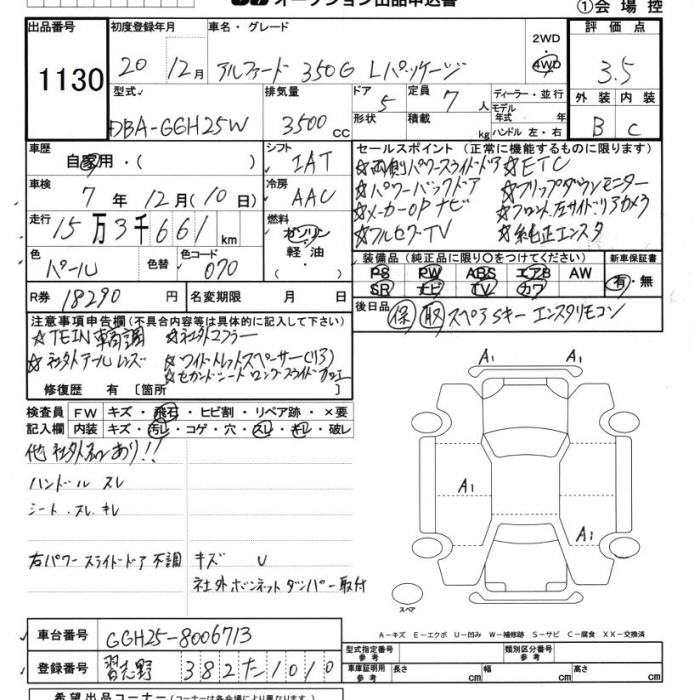 オークション出品申込書
①会場控
出品番号
1130
初度登録年月
20 12月
車名・グレード
アルファード 350G Lパッケージ
2WD
4WD
評価点
3.5
型式
DBA-GGH25W
排気量
3500 cc
ドア 5
形状
定員 7 人
積載 kg
ディーラー・並行
モデル年式 年
ハンドル 左・右
外装 内装
B C
車歴
自家用・( )
シフト
IAT
セールスポイント(正常に機能するものに限ります)
☆両側パワースライドドア ☆ETC
☆パワーバックドア ☆フリップダウンモニター
☆メーカーOPナビ ☆フロント,左サイド,リアカメラ
☆フルセグTV ☆純正エンスタ
車検
7年 12月(10日)
冷房
AAC
走行
15万3千661km
燃料
ガソリン
軽・油
( )
色
パール
色替
色コード
070
装備品(純正品に限り○をつけてください)
PS PW ABS エアB AW
SR ナビ TV カワ
新車保証書
有・無
R券 18290 円
名変期限 月 日
後日品 保 取 スペアSキー エンスタリモコン
注意事項申告欄(不具合内容等は具体的に記入して下さい)
☆TEIN車高調 ☆社外マフラー
☆社外テールレンズ ☆ワイドトレッドスペーサー(リア)
☆セカンドシートロングスライド加工
修復歴 有[箇所 ]
検査員 FW キズ・飛石・ヒビ割・リペア跡・×要
記入欄 内装 キズ・汚レ・コゲ・穴・スレ・キレ・破レ
他社外品あり!!
ハンドル スレ
シート.スレ.キレ
右パワースライドドア 不調 キズ U
社外ボンネットダンパー取付
A1 A1
A1
A1
スペア
A-キズ E-エクボ U-凹み W-補修跡 S-サビ C-腐食 XX-交換済
車台番号 GGH25-8006713
登録番号 習志野 382た1010
型式指定番号 参考
類別区分番号 参考
車庫証明用 参考 長さ cm 幅 cm 高さ cm
希望出品コーナー(コーナーは各会場により異なります)